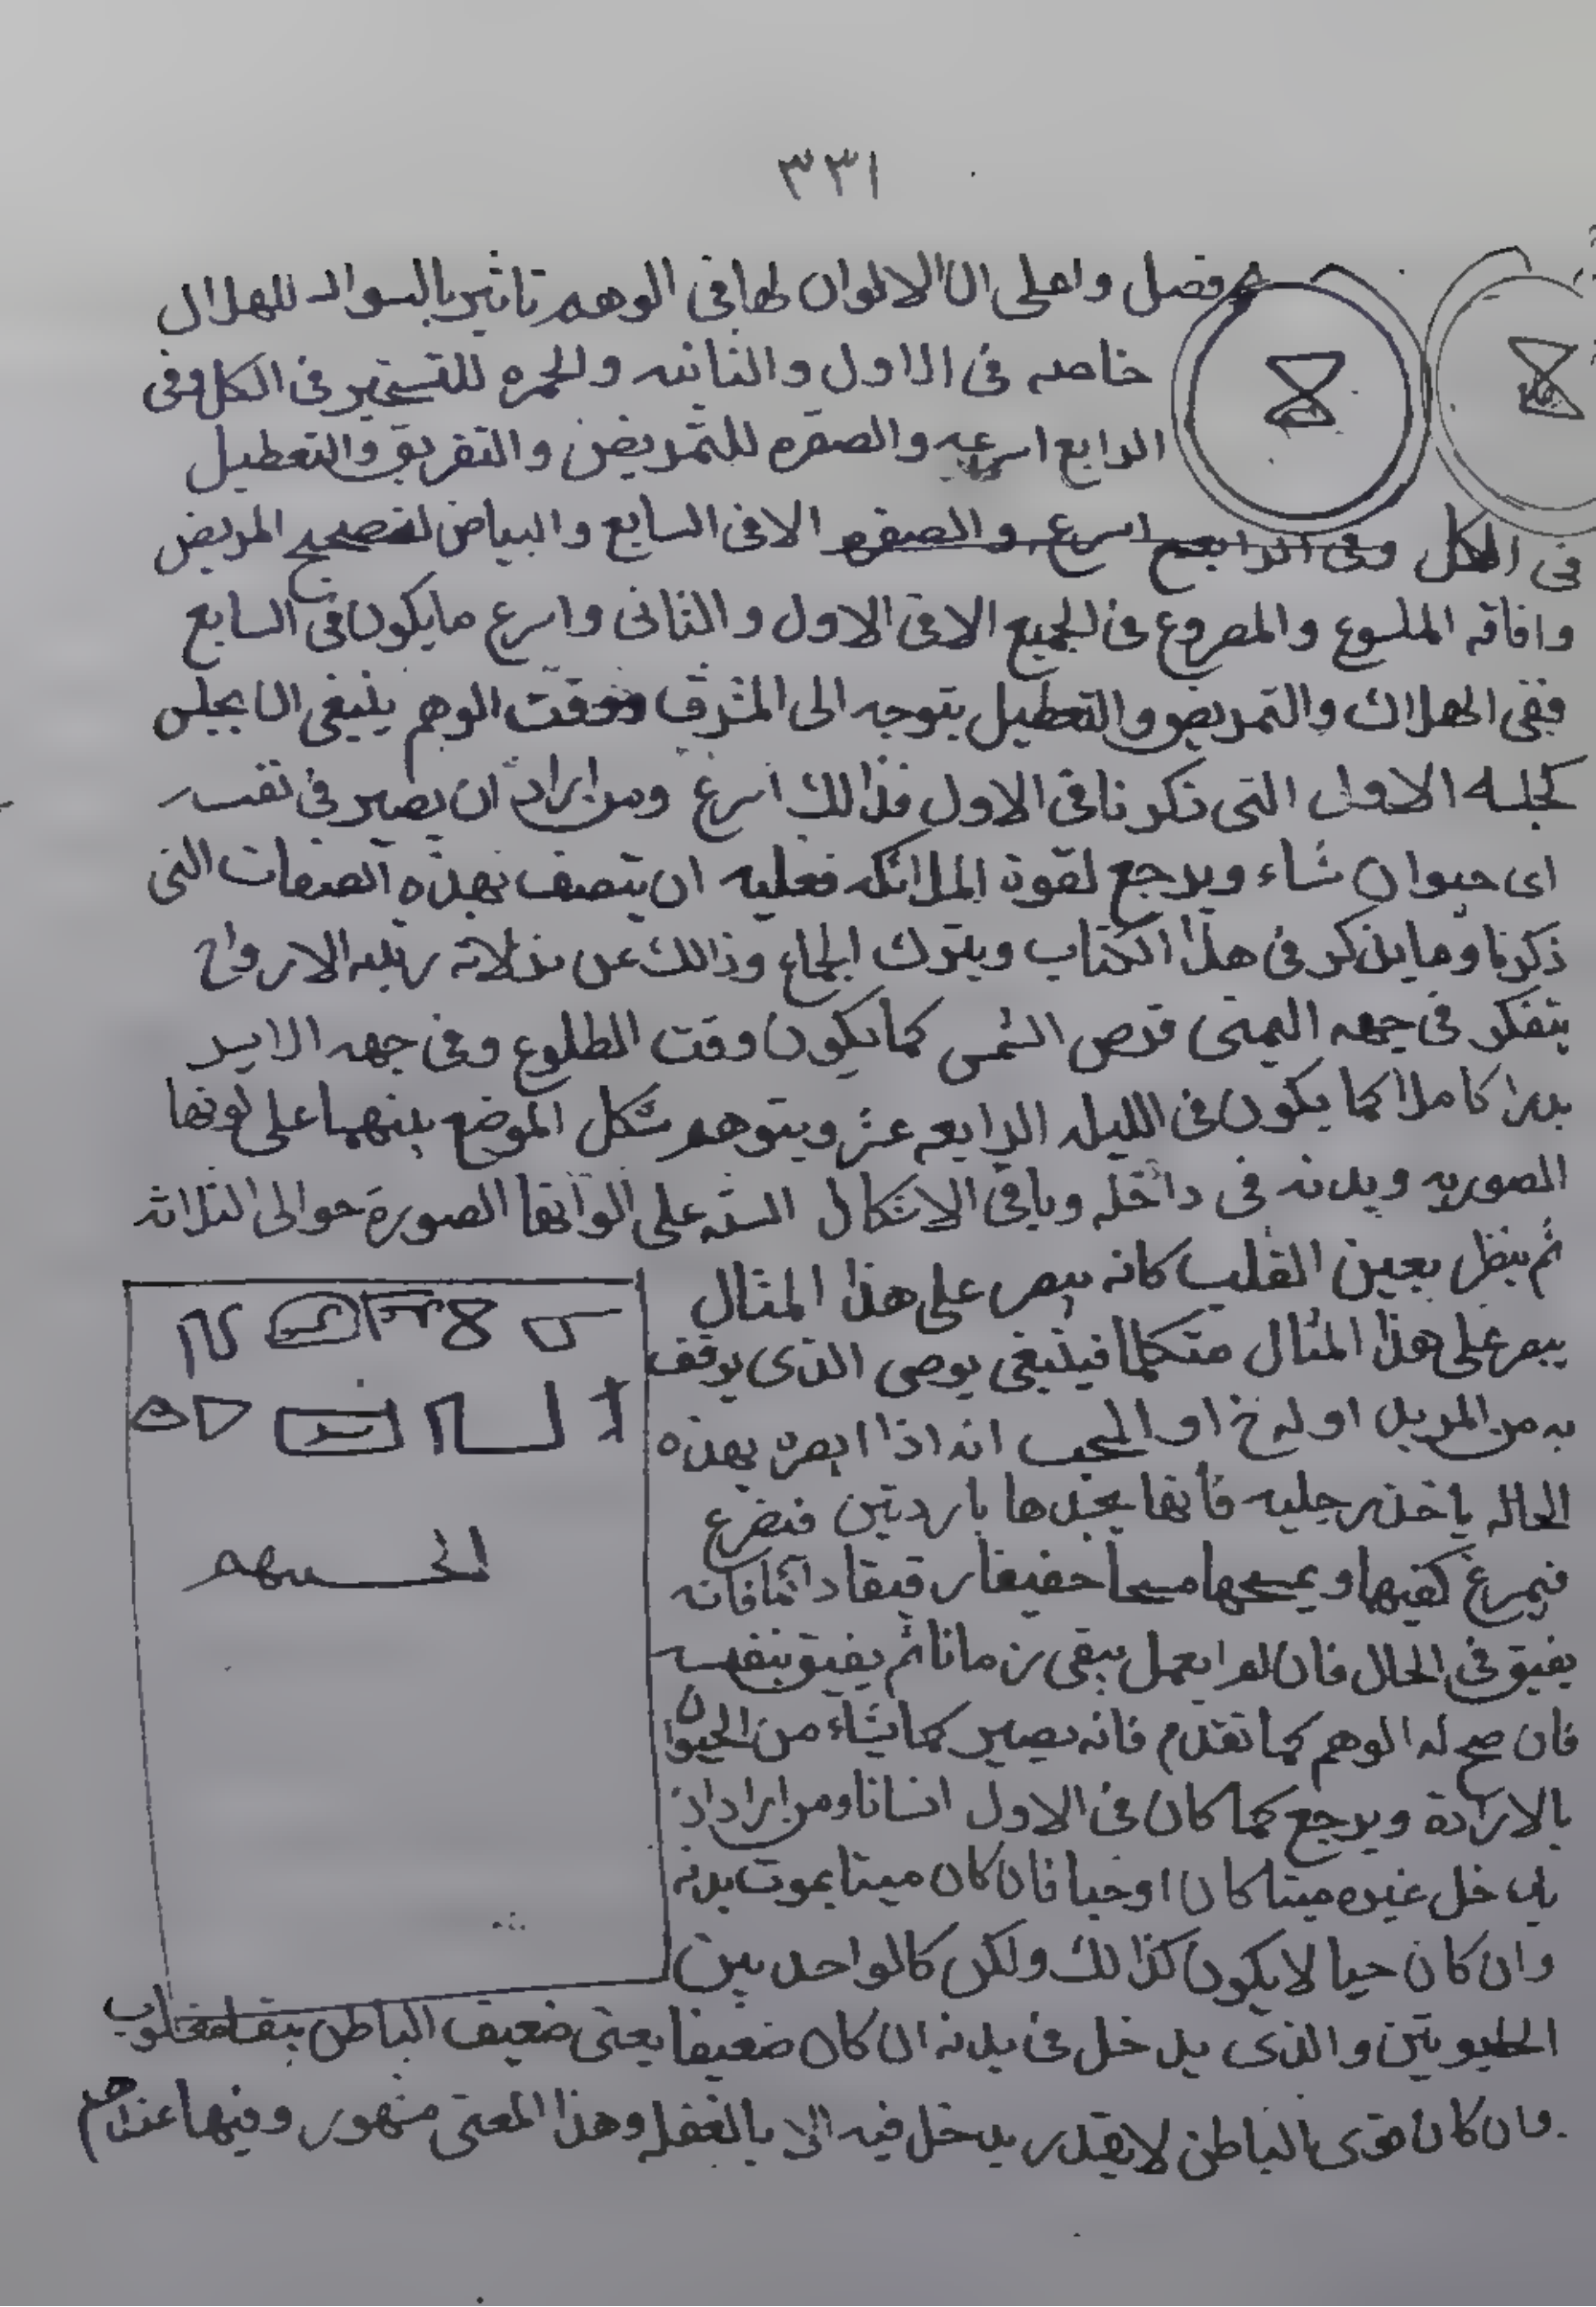 ٣٣١
فصل واعلى ان الالوان لها فى الوهم تاثير بالسواد للهلال
خاصه فى الاول والثانيه والحمره للتسخير فى الكل وفى
الرابع اسرع والصفره للتمريض والتفريق والتعطيل
فى الكل وفى الرابع اسرع والصفره الا فى السابع والبياض لتصحيح المريض
وافاقه الملسوع والمصروع فى الجميع الا فى الاول والثانى واسرع مايكون فى السابع
ففى الهلاك والتمريض والتعطيل يتوجه الى المشرق ووقت الوهم ينبغى ان يجلس
كجلسه الاول التى ذكرنا فى الاول فذالك اسرع ومن اراد ان يصير فى نفسه
اى حيوان شاء ويرجع لقوة الملائكه فعليه ان يتصف بهذه الصفات التى
ذكرنا وما يذكر فى هذا الكتاب ويترك الجماع وذالك عن رتبه الارواح
يتفكر فى جهه اليمنى قرص الشمس كما يكون وقت الطلوع وفى جهه الايسر
بدرا كاملا كما يكون فى الليله الرابعه عشر ويتوهم شكل الموضع بينهما على لونها
الصوريه وبدنه فى داخله وباقى الاشكال السته على الوانها الصورة حوالى الثلاثه
ثم ينظر بعين القلب كانه يبصر على هذا المثال
يبصر على هذا المثال متكلما فينبغى يوصى الذى يوقف
به من المريد او له خ او المحب انه اذا ابصره بهذه
الحاله ياخذ رجليه فانها يجدها باردتين فيضرع
فيمرغ كفيها ويمسحها مسحا خفيفا رقيقا دائما فانه
يفيق فى الحال فان لم ايعمل يبقى زمانا ثم يفيق بنفسه
فان صح له الوهم كما تقدم فانه يصير كما يشاء من الحيوان
بالارادة ويرجع كما كان فى الاول انسانا ومن اراد ان
يدخل غيره ميتا كان او حيا فان كان ميتا يموت بدنه
وان كان حيا لا يكون كذالك ولكن كالواحد بين
والذى يدخل فى بدنه ان كان ضعيفا يعنى ضعيف الباطن يبقا مغلوب
وان كان قوى الباطن لا يقدر يدخل فيه الا بالغفله وهذا المعنى مشهور وفيها